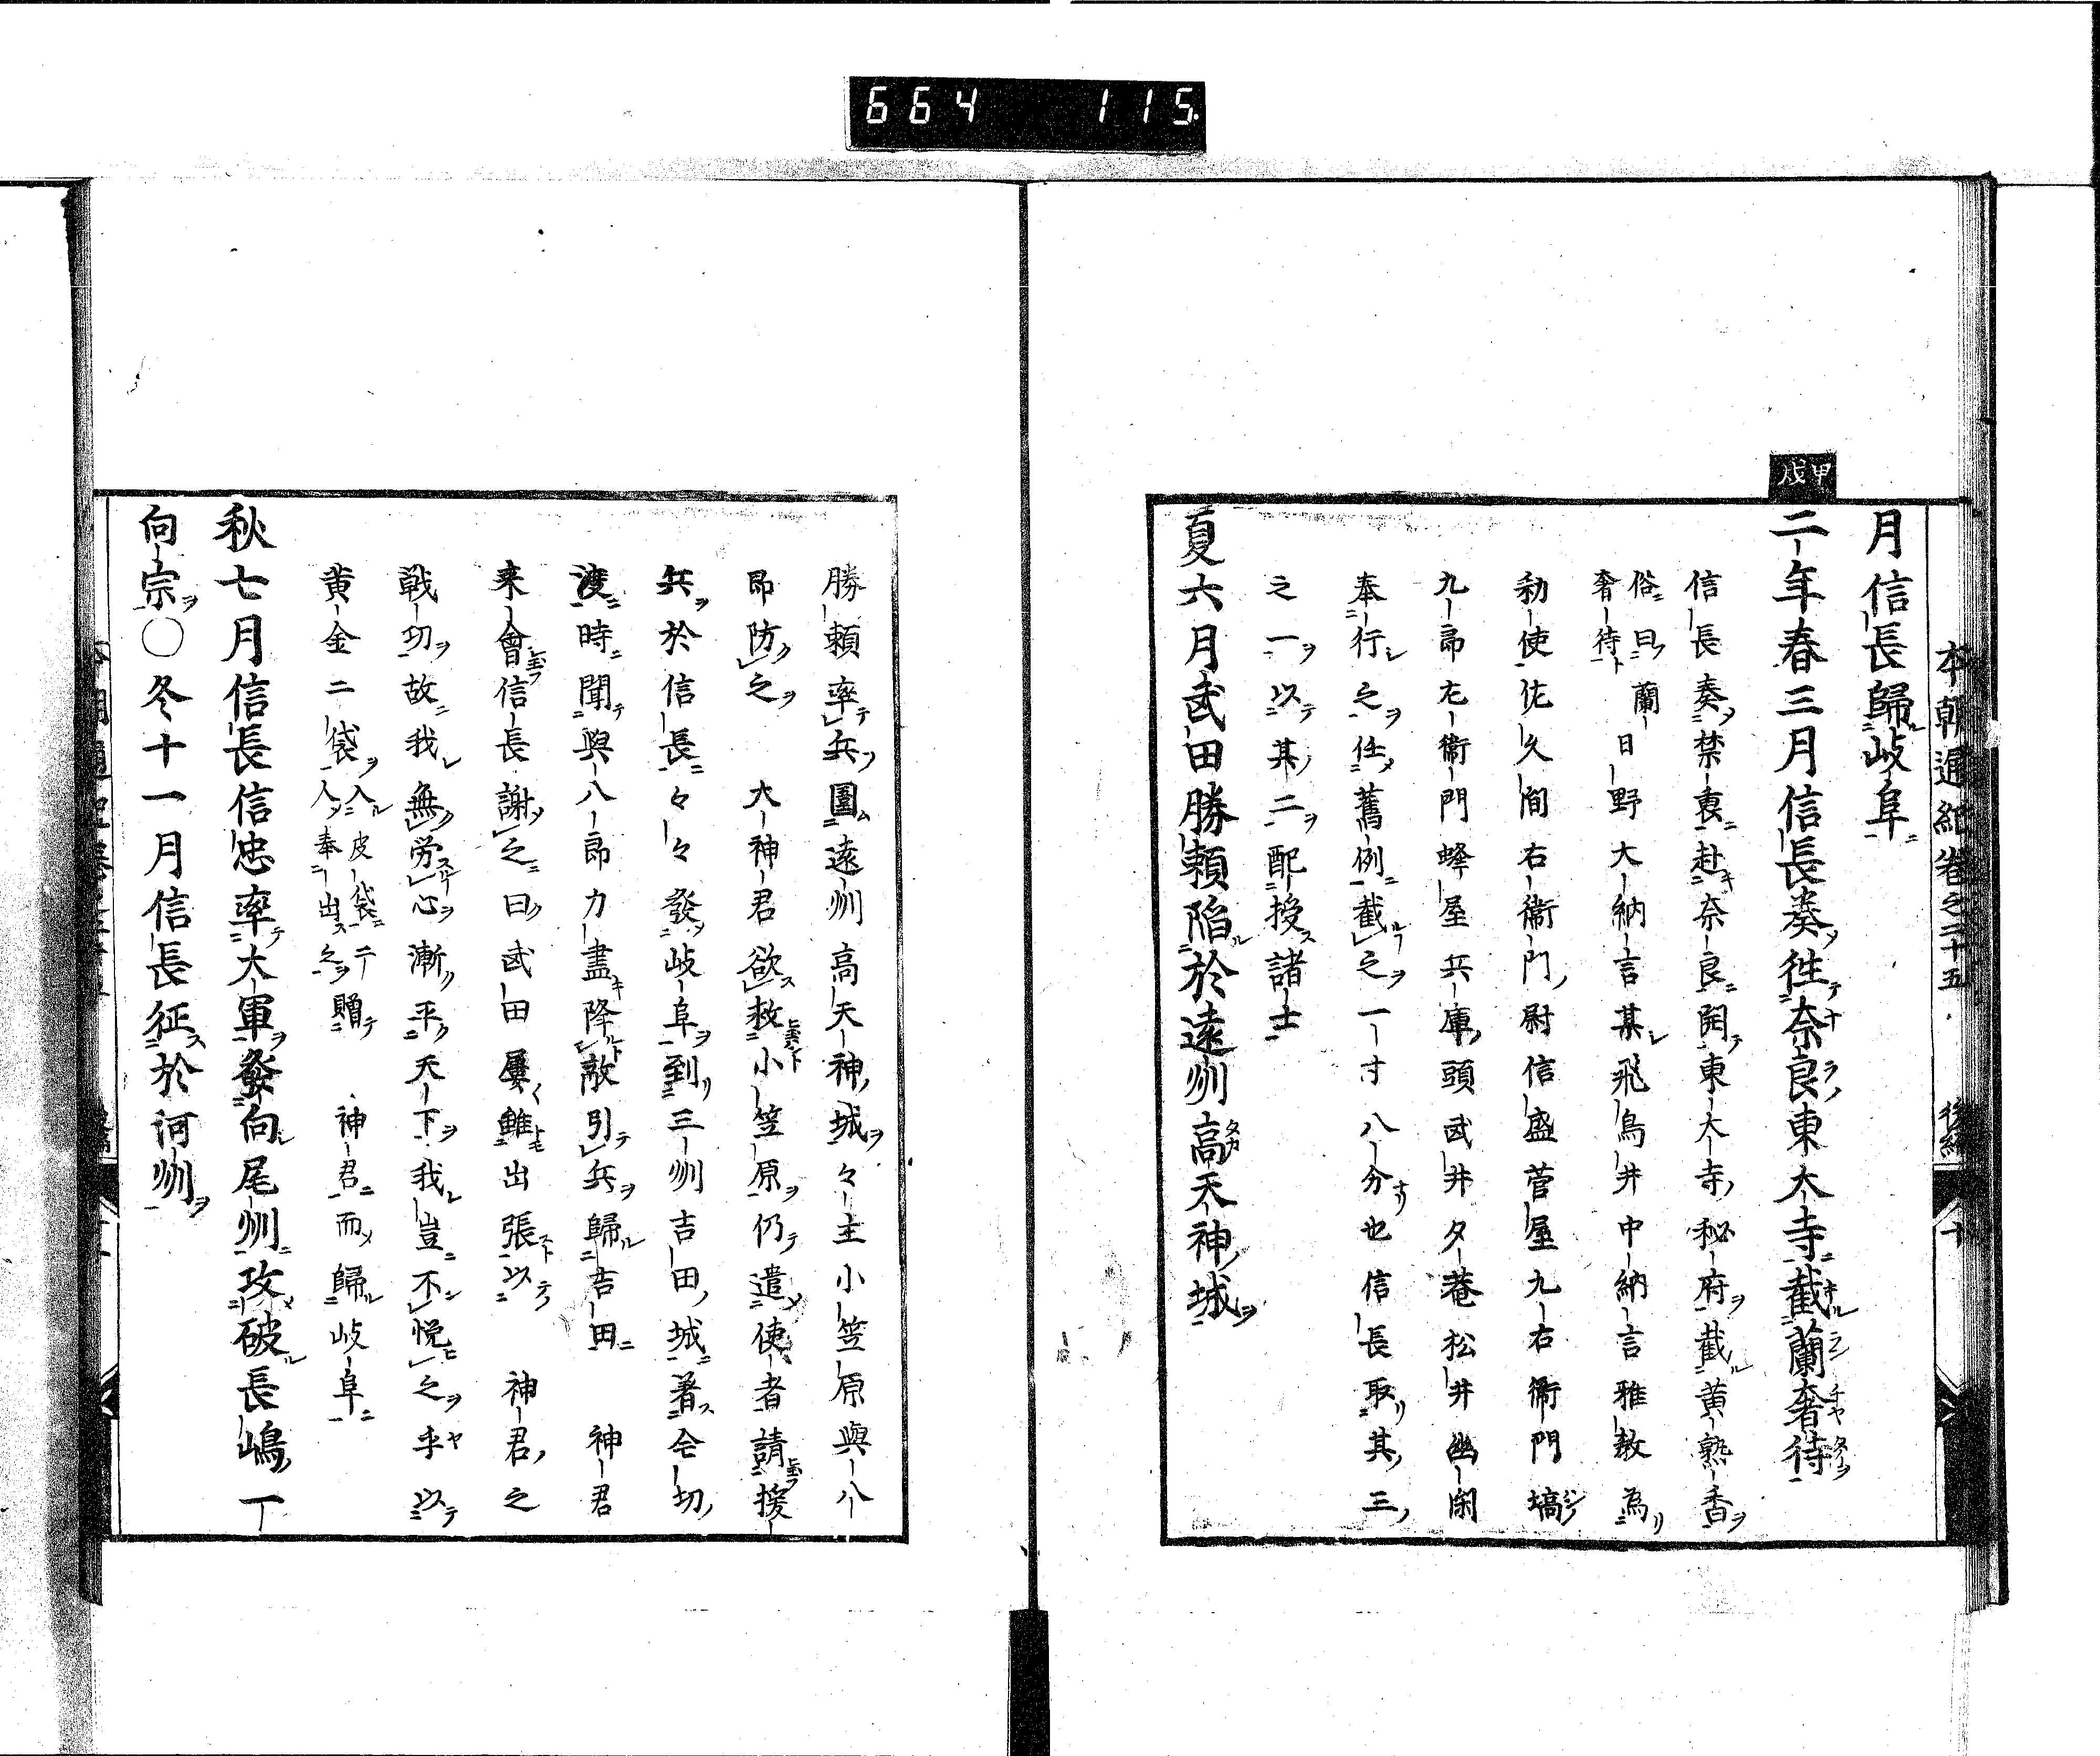 664 115
本朝通紀卷之二十五 後編 十
月信長歸岐阜
甲戌
二年春三月信長奏往奈良東大寺截蘭奢待
信長奏禁裏赴奈良開東大寺秘府截黄熟香
俗曰蘭奢待
日野大納言某飛鳥井中納言雅敖為
勅使佐久間右衞門尉信盛菅屋九右衞門塙
九郎左衞門蜂屋兵庫頭武井夕菴松井幽閑
奉行之任舊例截之一寸八分也信長取其三
之一以其二配授諸士
夏六月武田勝頼陷於遠州高天神城
勝頼率兵圍遠州高天神城々主小笠原與八
郎防之 大神君欲救小笠原仍遣使者請援
兵於信長々々發岐阜到三州吉田城着今切
渡時聞與八郎力盡降敵引兵歸吉田 神君
来會信長謝之曰武田屢雖出張以 神君之
戦功故我無労心漸平天下我豈不悦之乎以
黄金二袋入皮袋二
人奉出之贈 神君而歸岐阜
秋七月信長信忠率大軍發向尾州攻破長嶋一
向宗○冬十一月信長征於河州